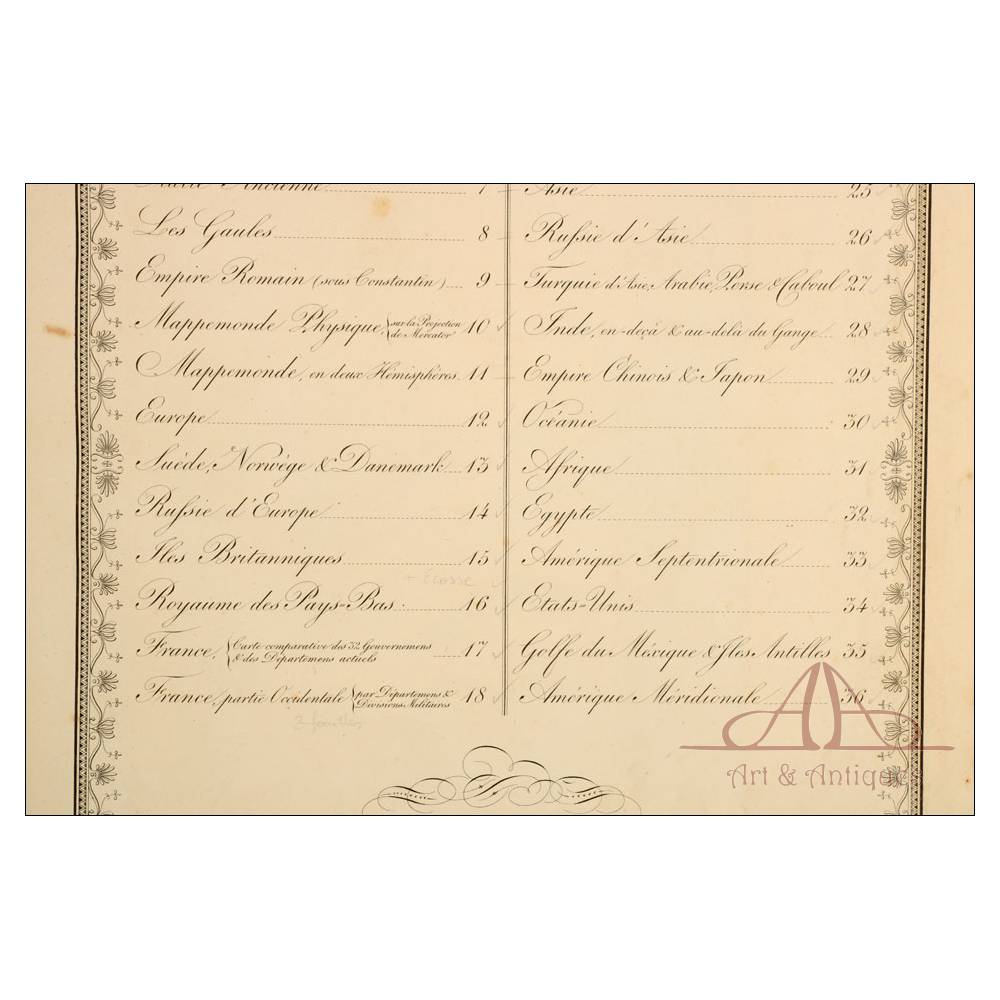 Italie Ancienne 7
Les Gaules 8
Empire Romain (sous Constantin) 9
Mappemonde Physique { sur la Projection
de Mercator 10
Mappemonde, en deux Hémisphères. 11
Europe 12
Suède, Norwège & Danemark 13
Russie d'Europe 14
Iles Britanniques 15
+ Ecosse
Royaume des Pays-Bas. 16
France, { Carte comparative des 32 Gouvernemens
& des Départemens actuels 17
France, partie Occidentale { par Départemens &
Divisions Militaires 18
3 feuilles
Asie 25
Russie d'Asie 26
Turquie d'Asie, Arabie, Perse & Caboul 27
Inde, en-deçà & au-delà du Gange 28
Empire Chinois & Japon 29
Océanie 30
Afrique 31
Egypte 32
Amérique Septentrionale 33
Etats-Unis 34
Golfe du Méxique & Iles Antilles 35
Amérique Méridionale 36
Art & Antique